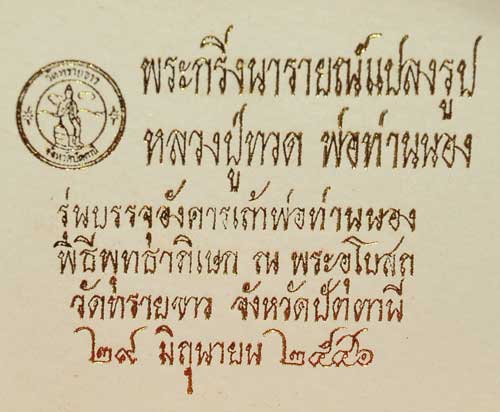 วัดทรายขาว
จังหวัดปัตตานี
พระกริ่งนารายณ์แปลงรูป
หลวงปู่ทวด พ่อท่านนอง
รุ่นบรรจุอังคารเถ้าพ่อท่านนอง
พิธีพุทธาภิเษก ณ พระอุโบสถ
วัดทรายขาว จังหวัดปัตตานี
๒๙ มิถุนายน ๒๕๔๖